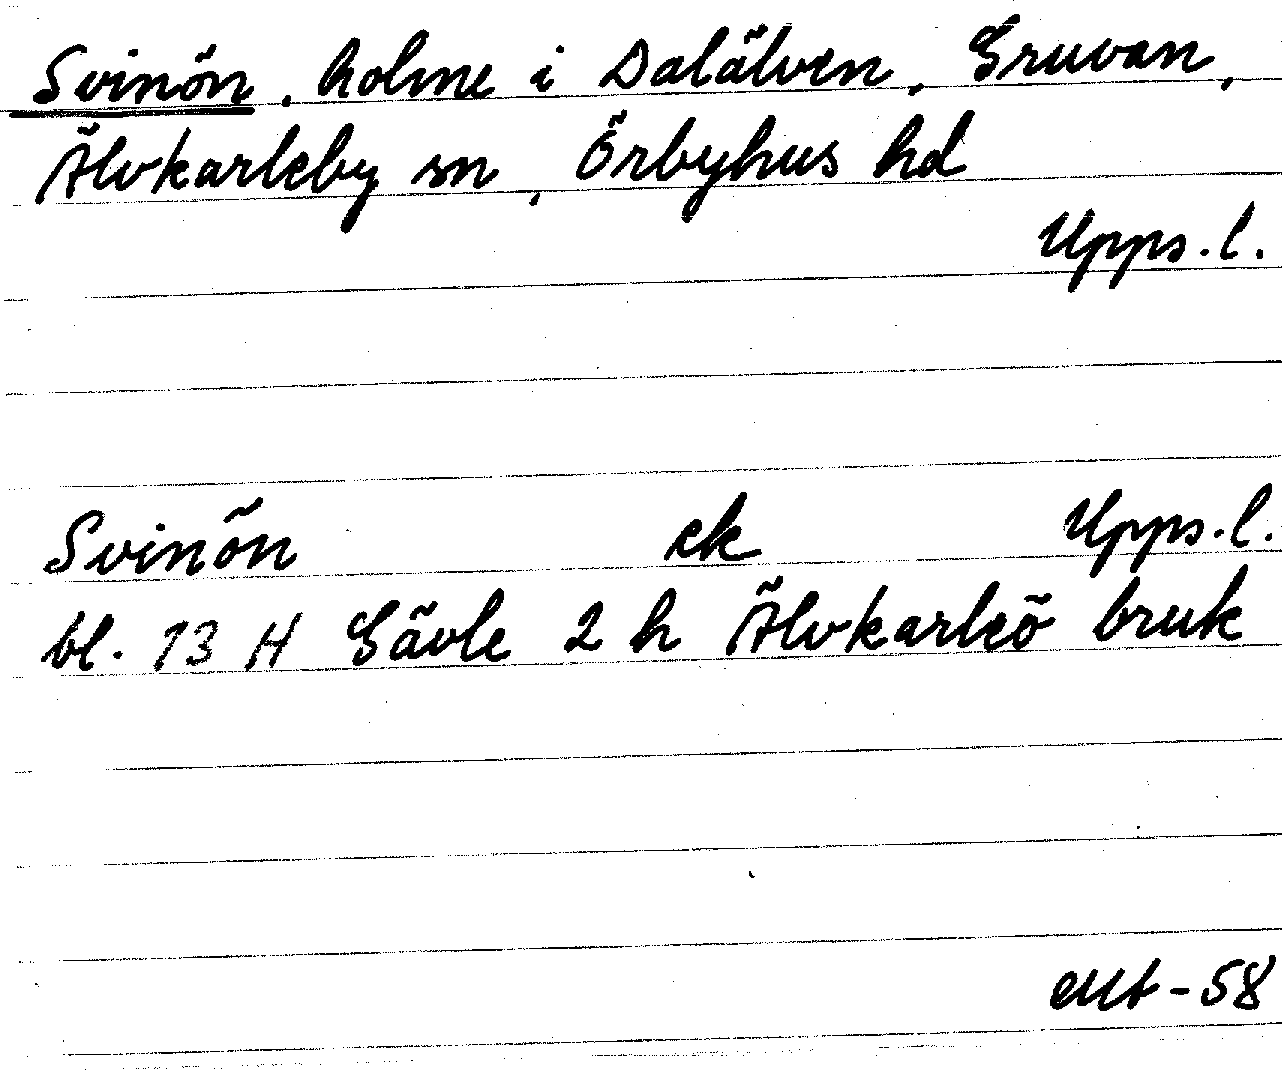 Svinön, holme i Dalälven, Gruvan,
Älvkarleby sn, Örbyhus hd
Upps.l.
Svinön ek Upps.l.
bl. 13 H Gävle 2 h Älvkarleö bruk
-58